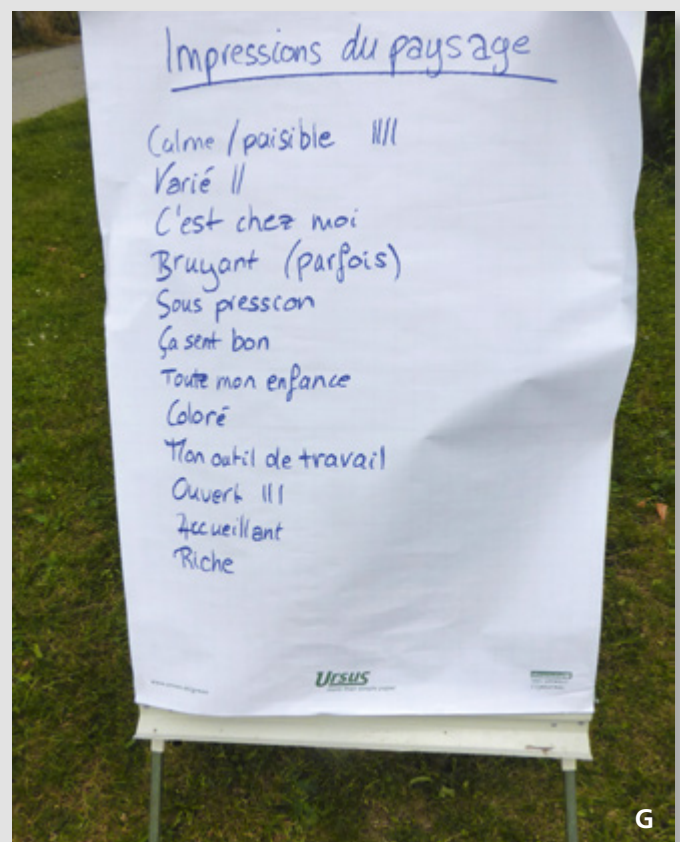 Impressions du paysage
Calme / paisible IIII
Varié II
C'est chez moi
Bruyant (parfois)
Sous pression
Ça sent bon
Toute mon enfance
Coloré
Mon outil de travail
Ouvert III
Accueillant
Riche
Ursus
G